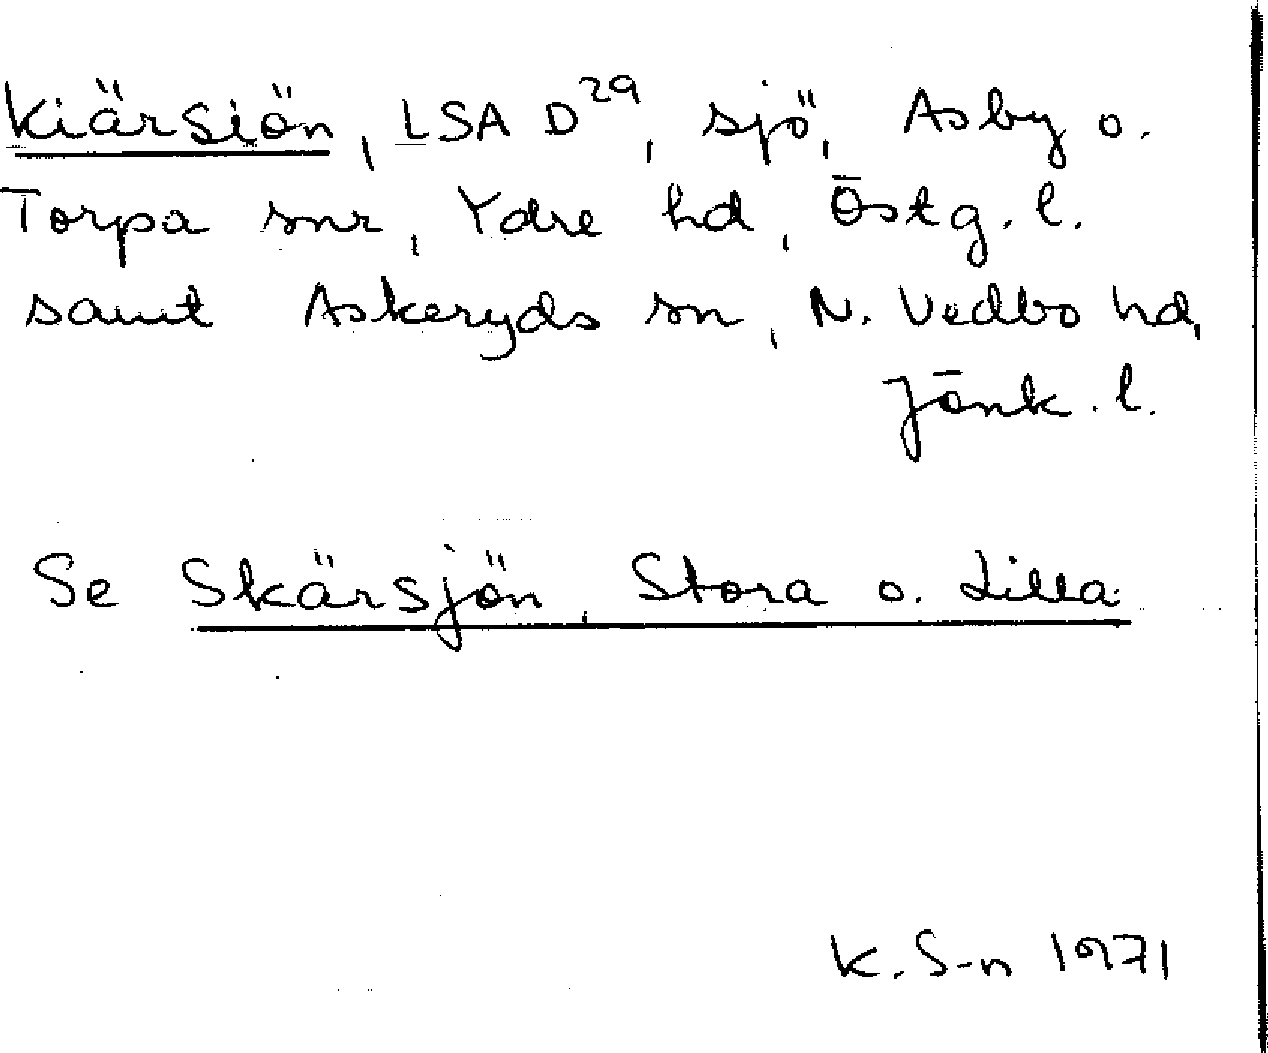 Kiärsiön, LSA D29, sjö, Asby o.
Torpa snr, Ydre hd, Östg. l.
samt Askeryds sn, N. Vedbo hd,
Jönk. l.
Se Skärsjön, Stora o. Lilla.
K. S-n 1971